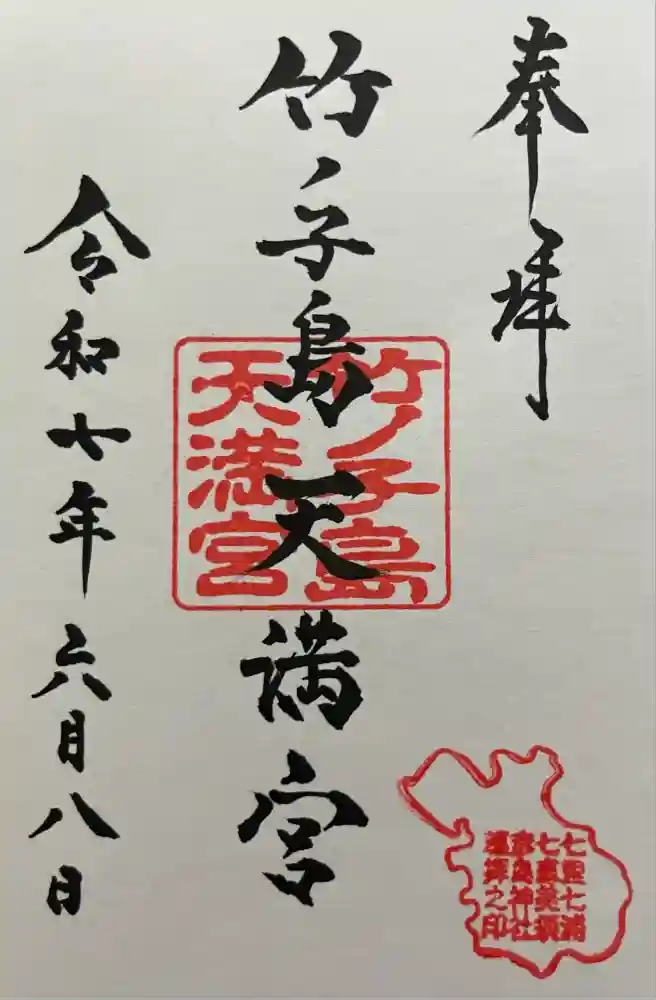 奉拝
竹ノ子島天満宮
竹ノ子島
天満宮
令和七年六月八日
七里七浦
七恵美須
神社
遥拝之印